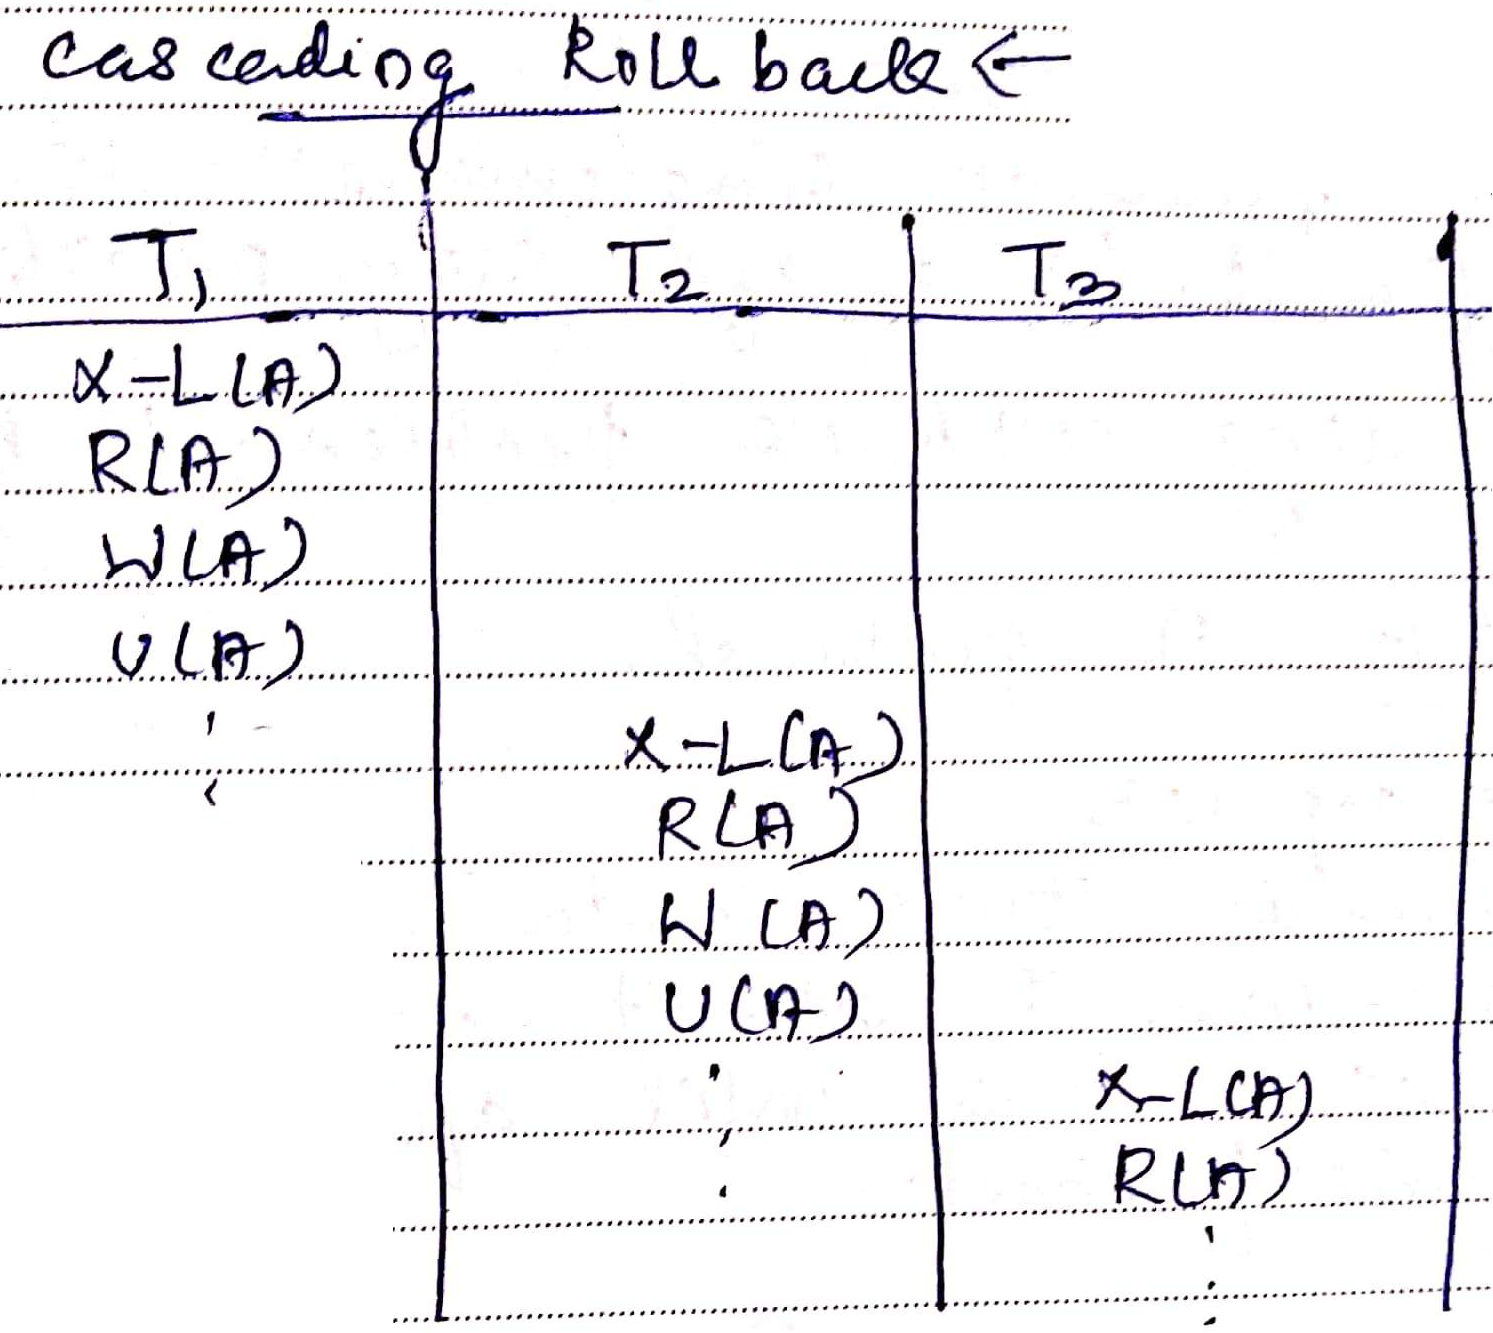 cascading Roll back ←
T1 T2 T3
X-L(A)
R(A)
W(A)
U(A)
X-L(A)
R(A)
W(A)
U(A)
X-L(A)
R(A)